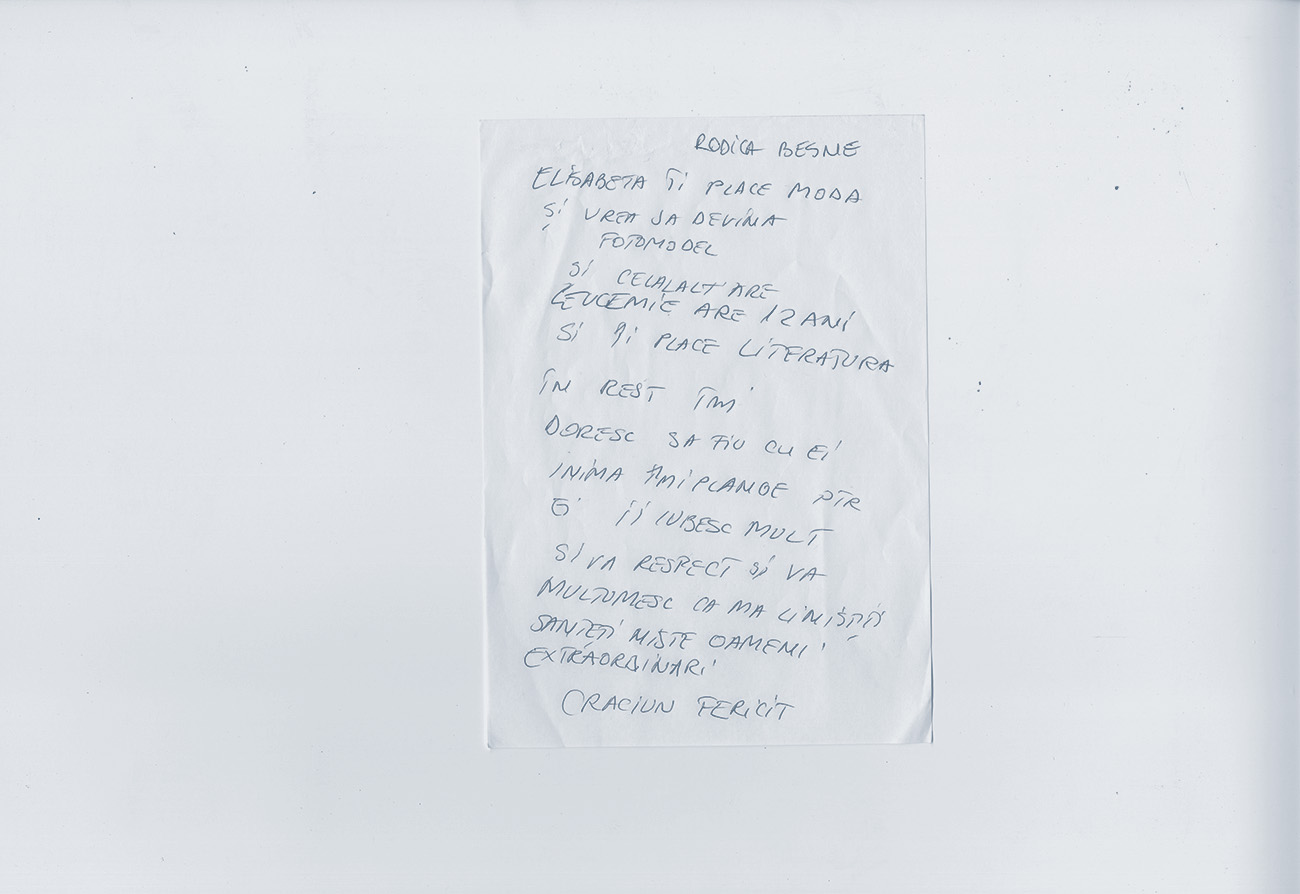 RODICA BESNE
ELISABETA ÎI PLACE MODA
ȘI VREA SA DEVINA
FOTOMODEL
SI CELALALT ARE
LEUCEMIE ARE 12 ANI
SI ÎI PLACE LITERATURA
ÎN REST ÎMI
DORESC SA FIU CU EI
INIMA ÎMI PLANGE PTR
EI ÎI IUBESC MULT
SI VA RESPECT SI VA
MULTUMESC CA MA LINIȘTIȚI
SANTEȚI NIȘTE OAMENI
EXTRAORDINARI
CRACIUN FERICIT